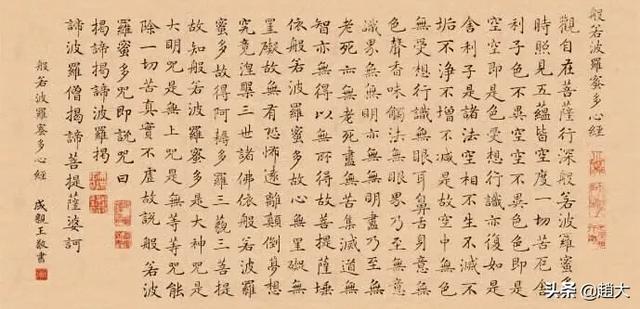 般若波羅蜜多心經
觀自在菩薩行深般若波羅蜜多
時照見五蘊皆空度一切苦厄舍
利子色不異空空不異色色即是
空空即是色受想行識亦復如是
舍利子是諸法空相不生不滅不
垢不淨不增不減是故空中無色
無受想行識無眼耳鼻舌身意無
色聲香味觸法無眼界乃至無意
識界無無明亦無無明盡乃至無
老死亦無老死盡無苦集滅道無
智亦無得以無所得故菩提薩埵
依般若波羅蜜多故心無罣礙無
罣礙故無有恐怖遠離顛倒夢想
究竟涅槃三世諸佛依般若波羅
蜜多故得阿耨多羅三藐三菩提
故知般若波羅蜜多是大神咒是
大明咒是無上咒是無等等咒能
除一切苦真實不虛故說般若波
羅蜜多咒即說咒曰
揭諦揭諦波羅揭
諦波羅僧揭諦菩提薩婆訶
般若波羅蜜多心經
成親王敬書
头条 @趙大